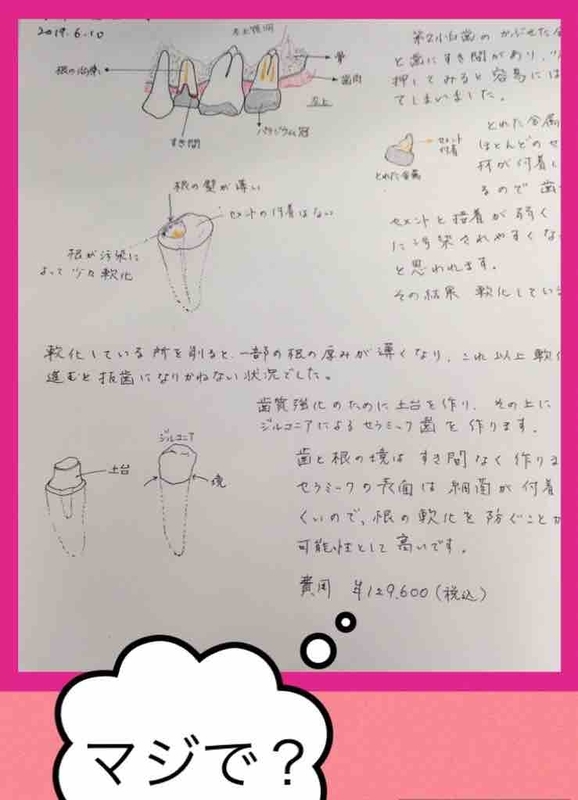 2019.6.10
根の治療
骨
歯肉
左上
すき間
パラジウム冠
第2小臼歯のかぶせた金
と歯にすき間があり、ツ
押してみると容易には
てしまいました。
とれた金属
セメント
付着
ほとんどのセ
とれた金属
材が付着し
るので 歯
根の壁が薄い
セメントの付着はない
セメントと接着が弱く
に汚染されやすくな
と思われます。
根が汚染に
よって少々軟化
その結果 軟化してい
軟化している所を削ると、一部の根の厚みが薄くなり、これ以上軟化
進むと抜歯になりかねない状況でした。
歯質強化のために土台を作り、その上に
ジルコニアによるセラミック歯を作ります。
ジルコニア
土台
境
歯と根の境はすき間なく作りま
セラミックの表面は細菌が付着
くいので、根の軟化を防ぐことが
可能性として高いです。
費用 ¥129,600(税込)
マジで?